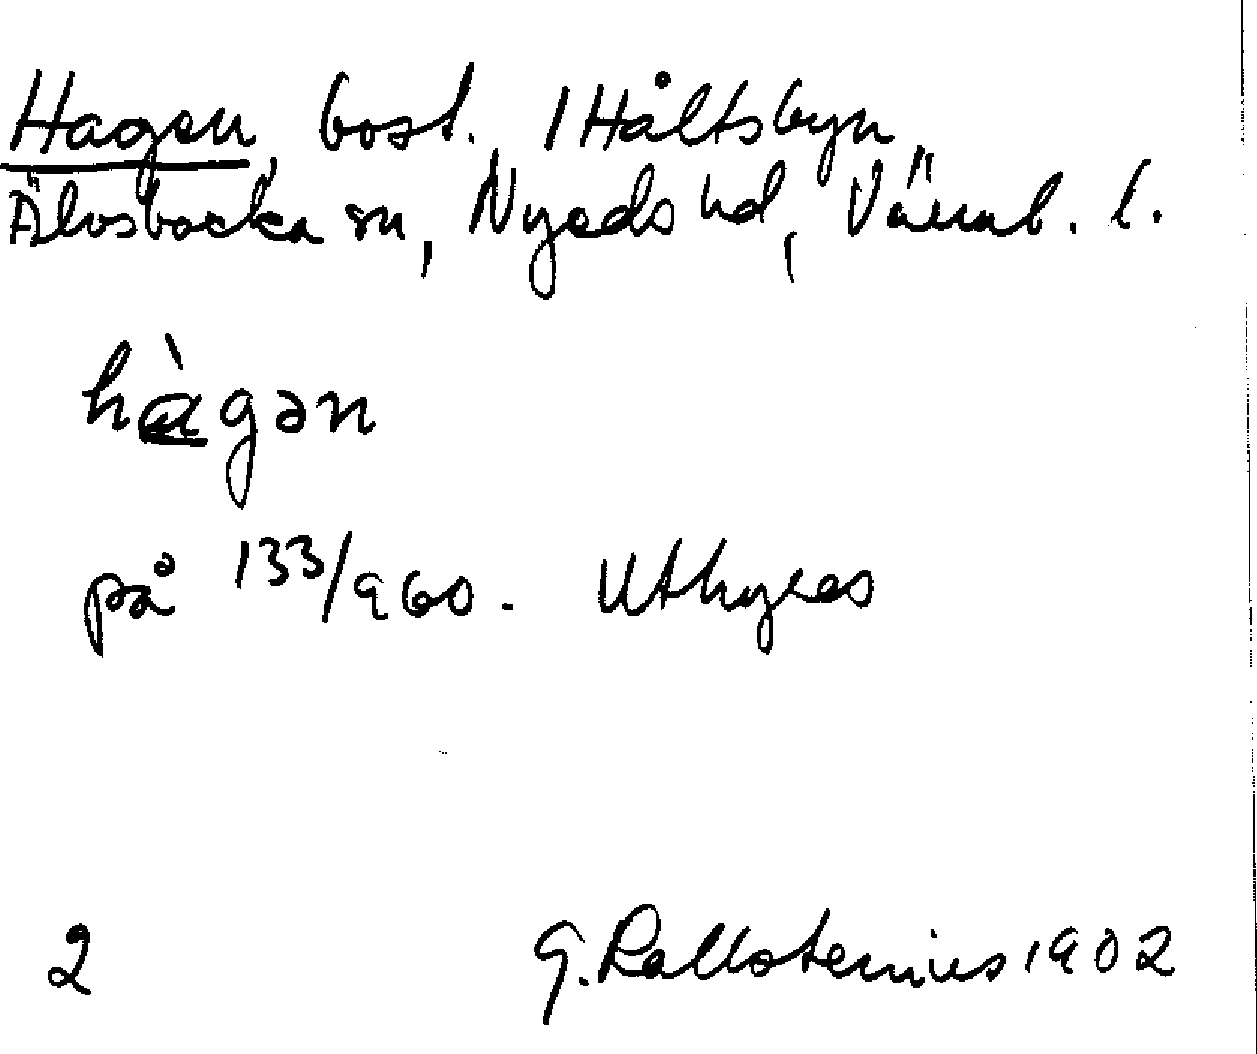 Hagen, bost. 1 Håltsbyn,
Älvsbacka sn, Nyeds hd, Värml. l.
hàgən
på 133/960. Uthyres
2 G. Kallstenius 1902